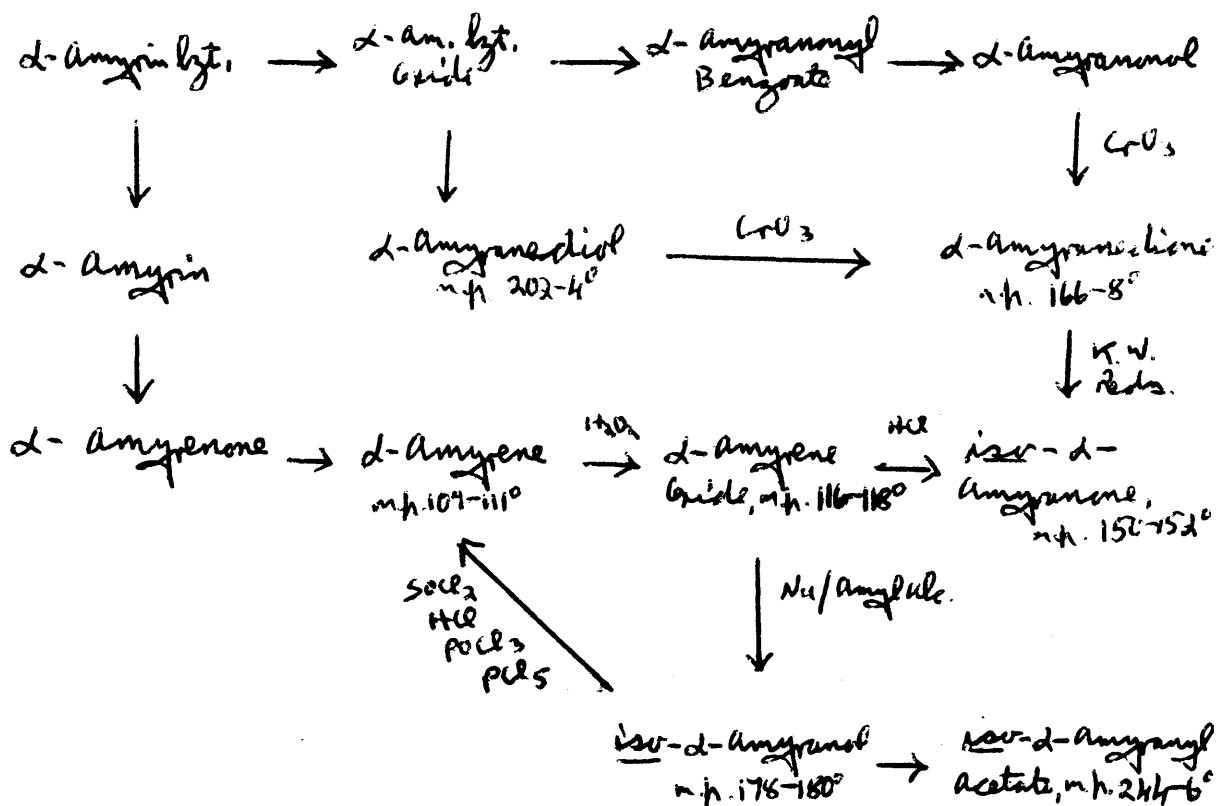 α-Amyrin bzt. → α-am. bzt. → α-Amyranonyl → α-Amyranonol
Oxide
Benzoate
↓ ↓ ↓ CrO3
α-Amyrin
α-Amyranediol
m.p. 202-4°
CrO3 →
α-Amyranedione
m.p. 166-8°
↓ ↓ K.W.
Redn.
α-Amyrenone → α-Amyrene
m.p. 109-111°
H2O2 →
α-Amyrene
Oxide, m.p. 116-118°
HCl →
iso-α-
Amyranone,
SOCl2
HCl
POCl3
PCl5
↓ Na/Amylalc.
iso-α-Amyranol
m.p. 178-180°
→
iso-α-Amyranyl
acetate, m.p. 244-6°